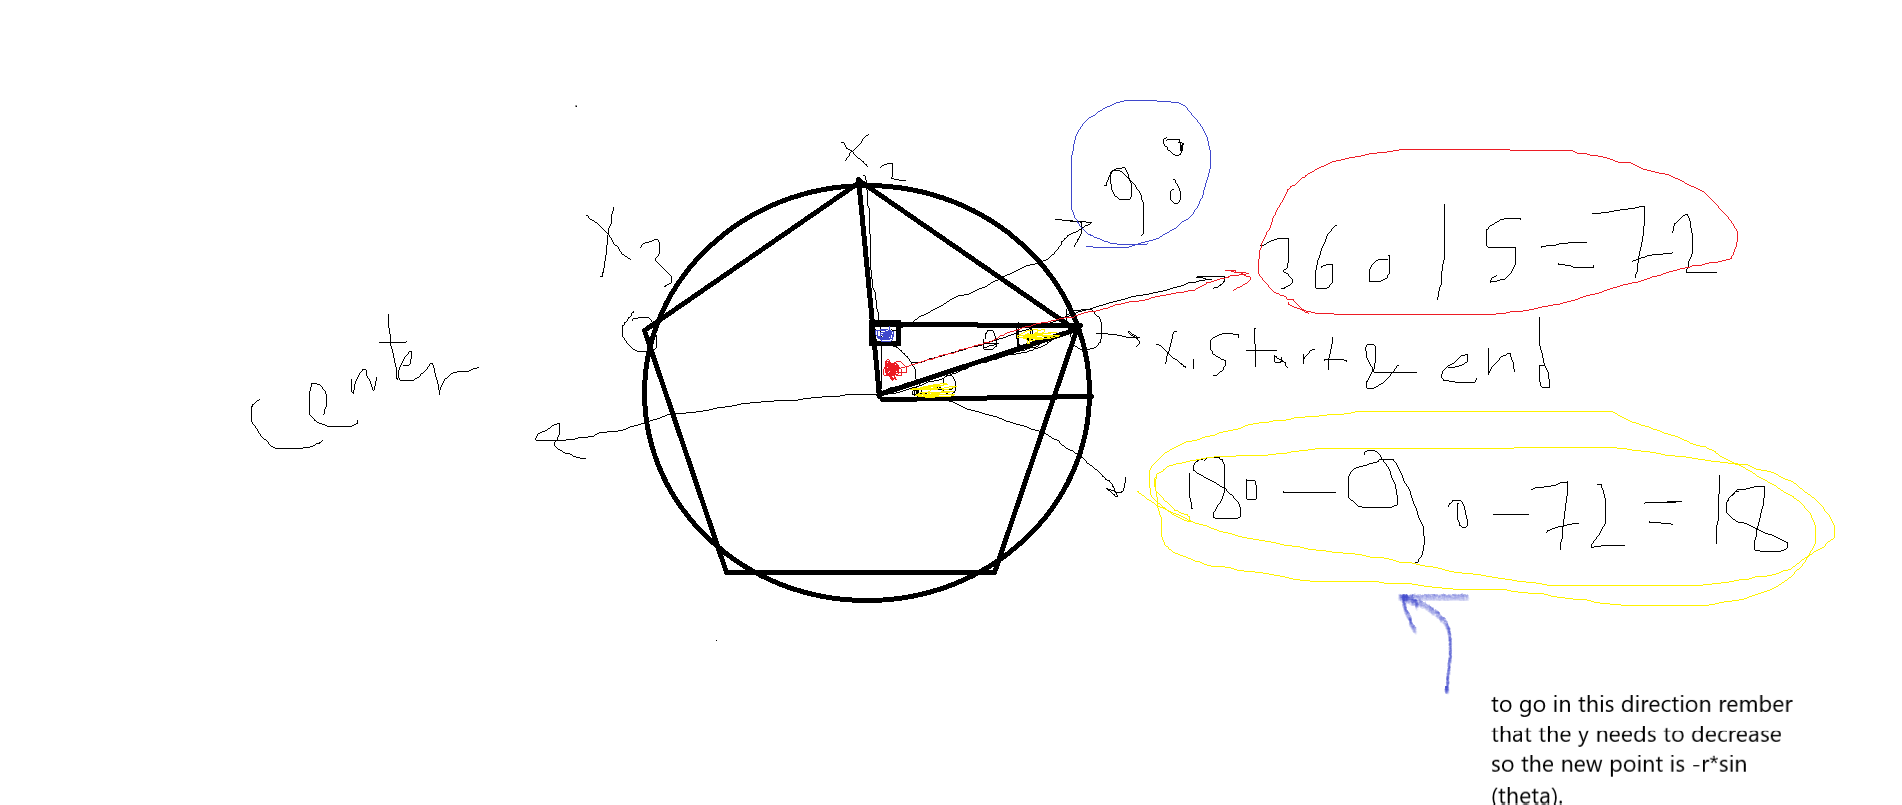 x2
90°
x3
360/5=72
θ
x1 Start & end
center
180-90-72=18
to go in this direction rember
that the y needs to decrease
so the new point is -r*sin
(theta).